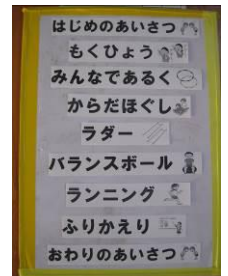 はじめのあいさつ
もくひょう
みんなであるく
からだほぐし
ラダー
バランスボール
ランニング
ふりかえり
おわりのあいさつ